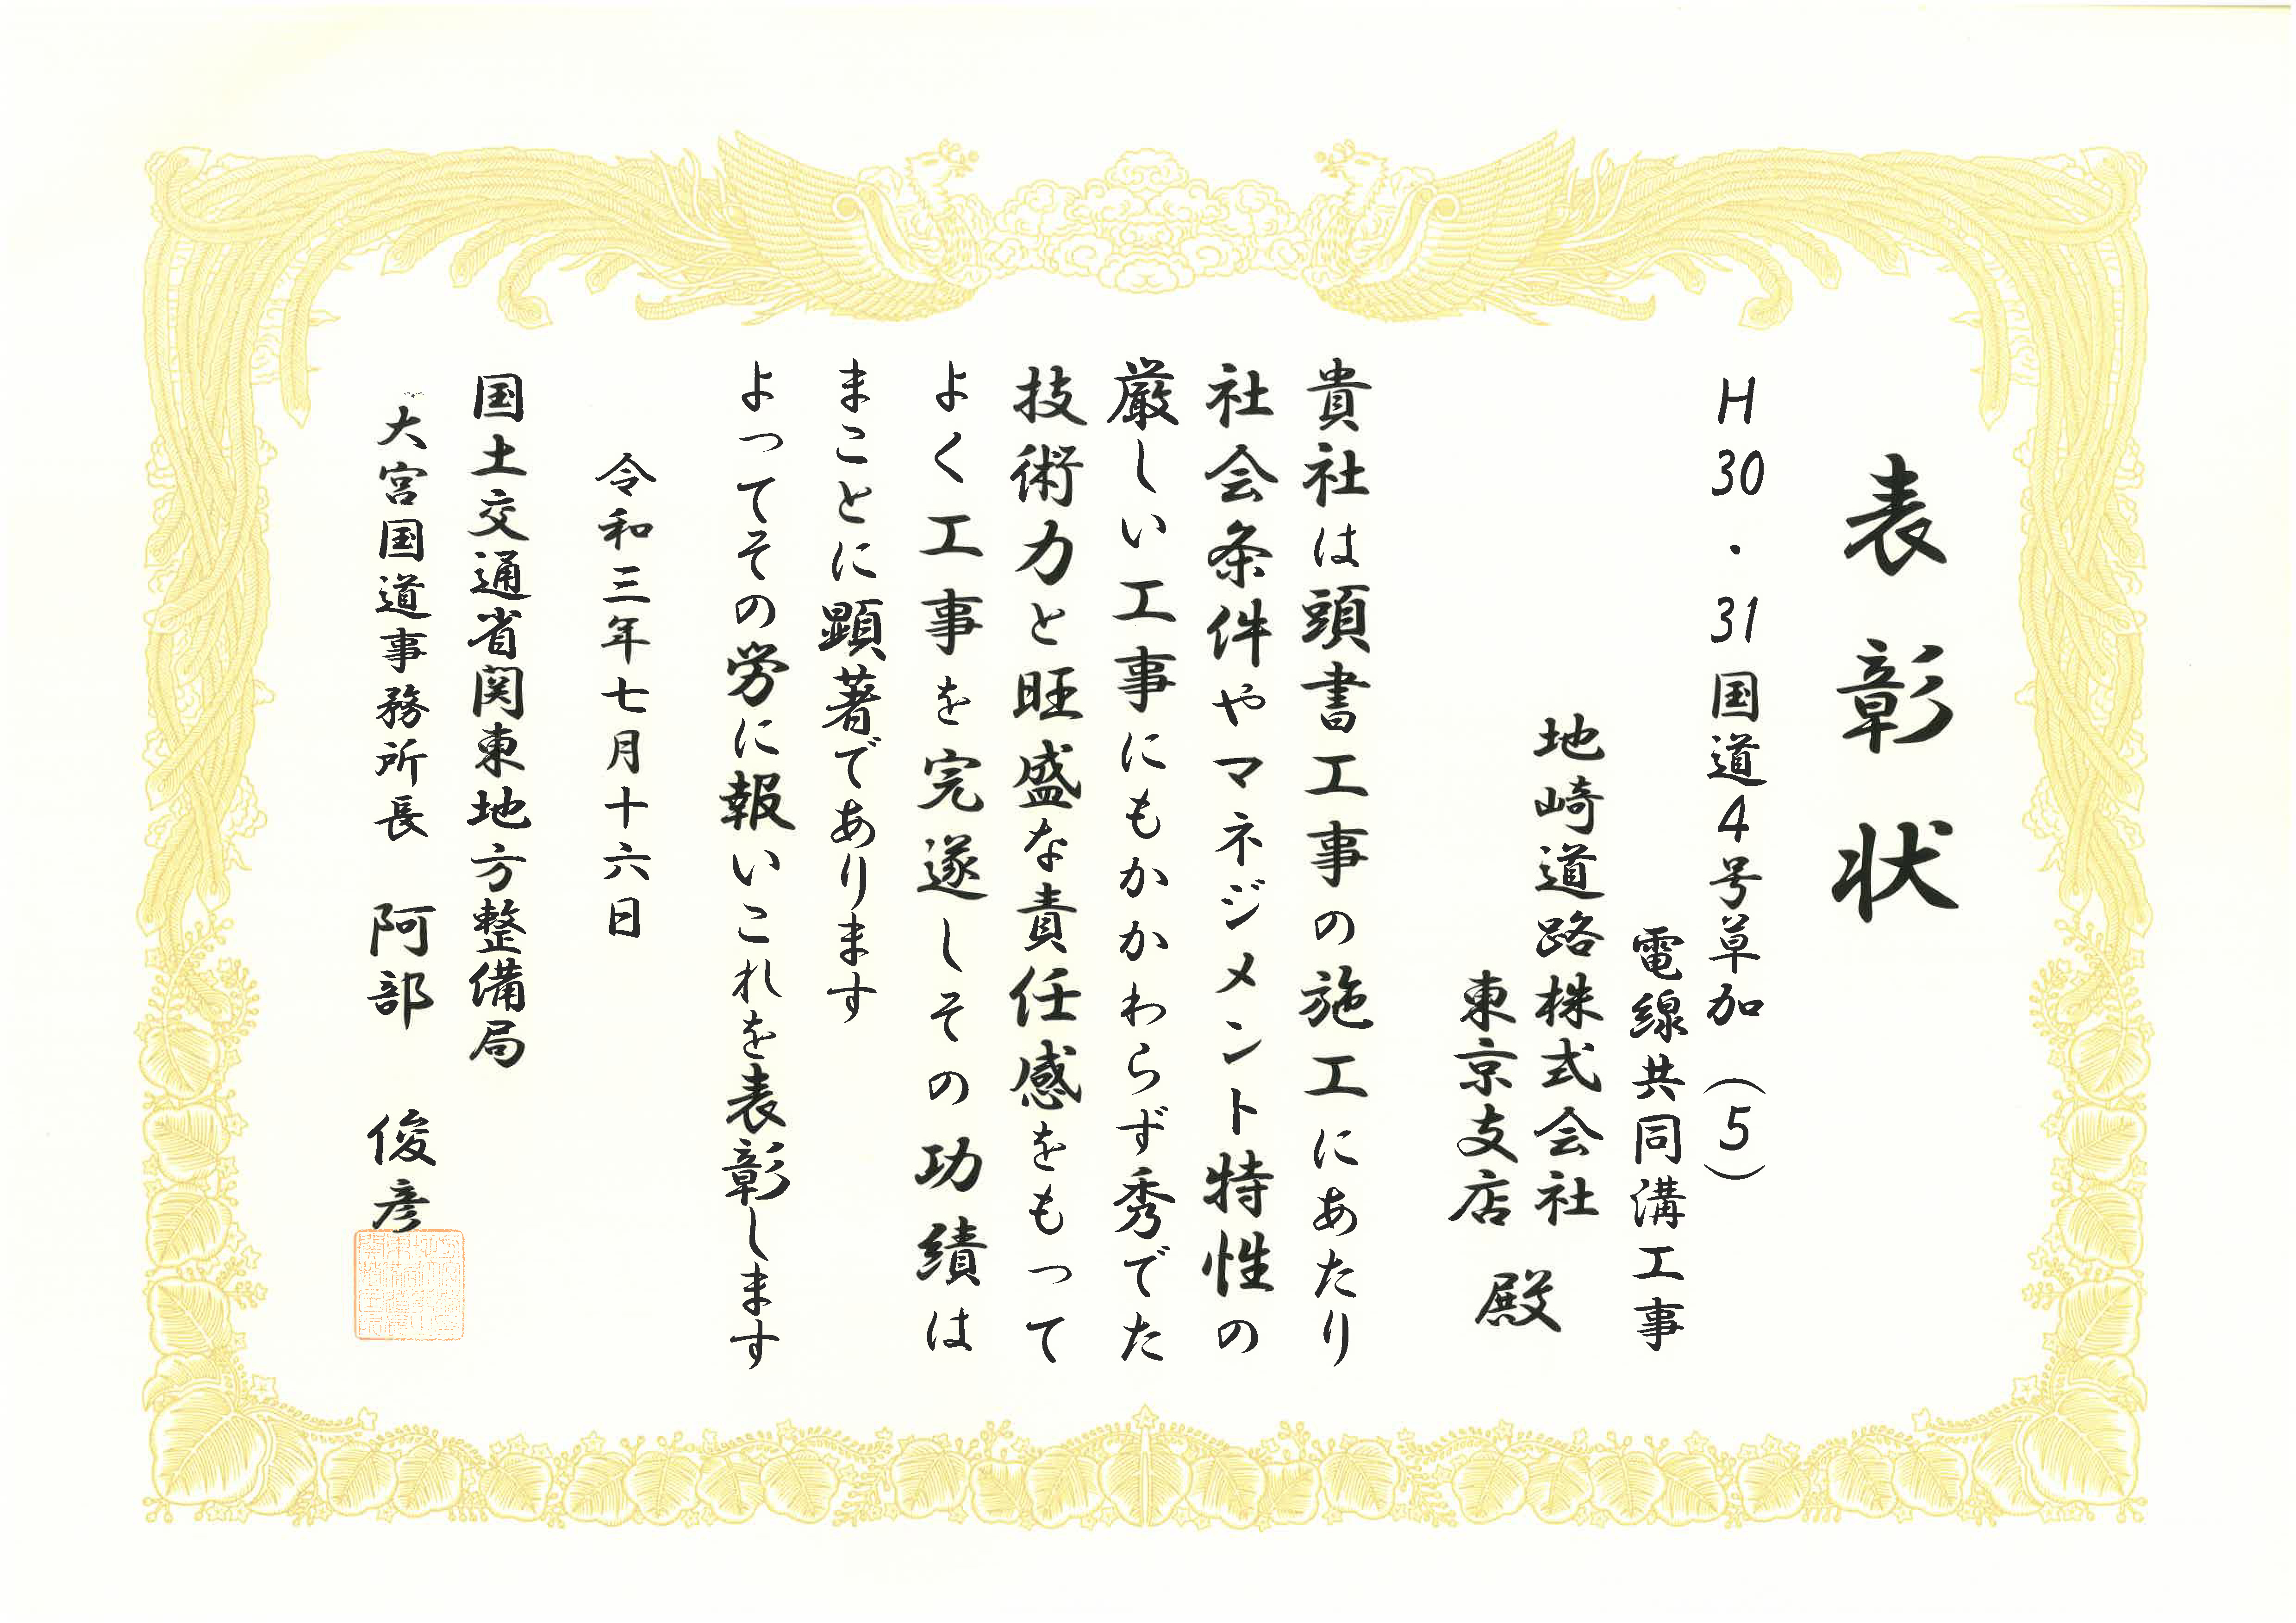 表彰状
H30・31国道4号草加（5）
電線共同溝工事
地崎道路株式会社
東京支店 殿
貴社は頭書工事の施工にあたり
社会条件やマネジメント特性の
厳しい工事にもかかわらず秀でた
技術力と旺盛な責任感をもって
よく工事を完遂しその功績は
まことに顕著であります
よってその労に報いこれを表彰します
令和三年七月十六日
国土交通省関東地方整備局
大宮国道事務所長 阿部 俊彦